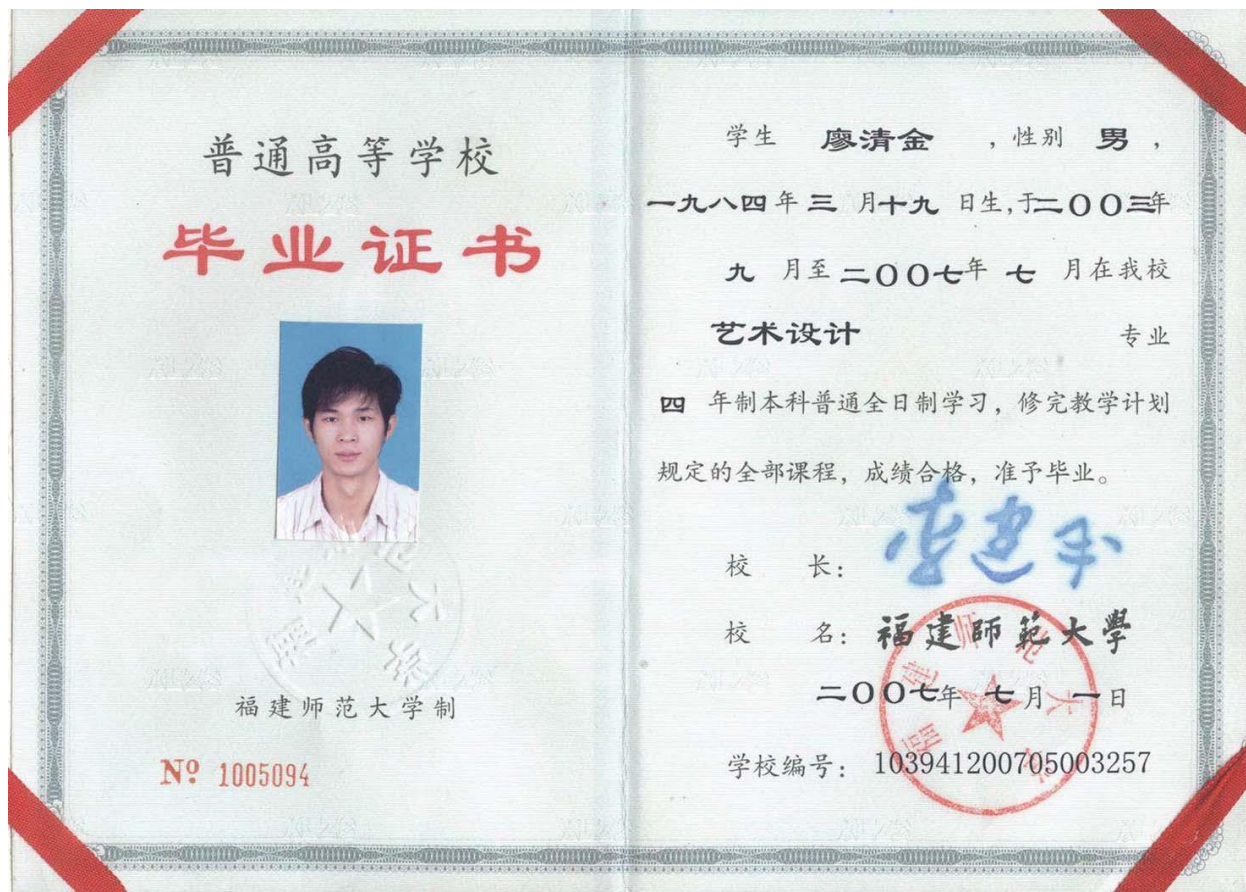 普通高等学校
毕业证书
福建师范大学制
Nº 1005094
学生 廖清金 ，性别 男 ，
一九八四年三月十九日生，于二〇〇三年
九月至二〇〇七年七月在我校
艺术设计 专业
四年制本科普通全日制学习，修完教学计划
规定的全部课程，成绩合格，准予毕业。
校 长：
校 名：福建師範大學
二〇〇七年七月一日
学校编号：103941200705003257
福建师范大学